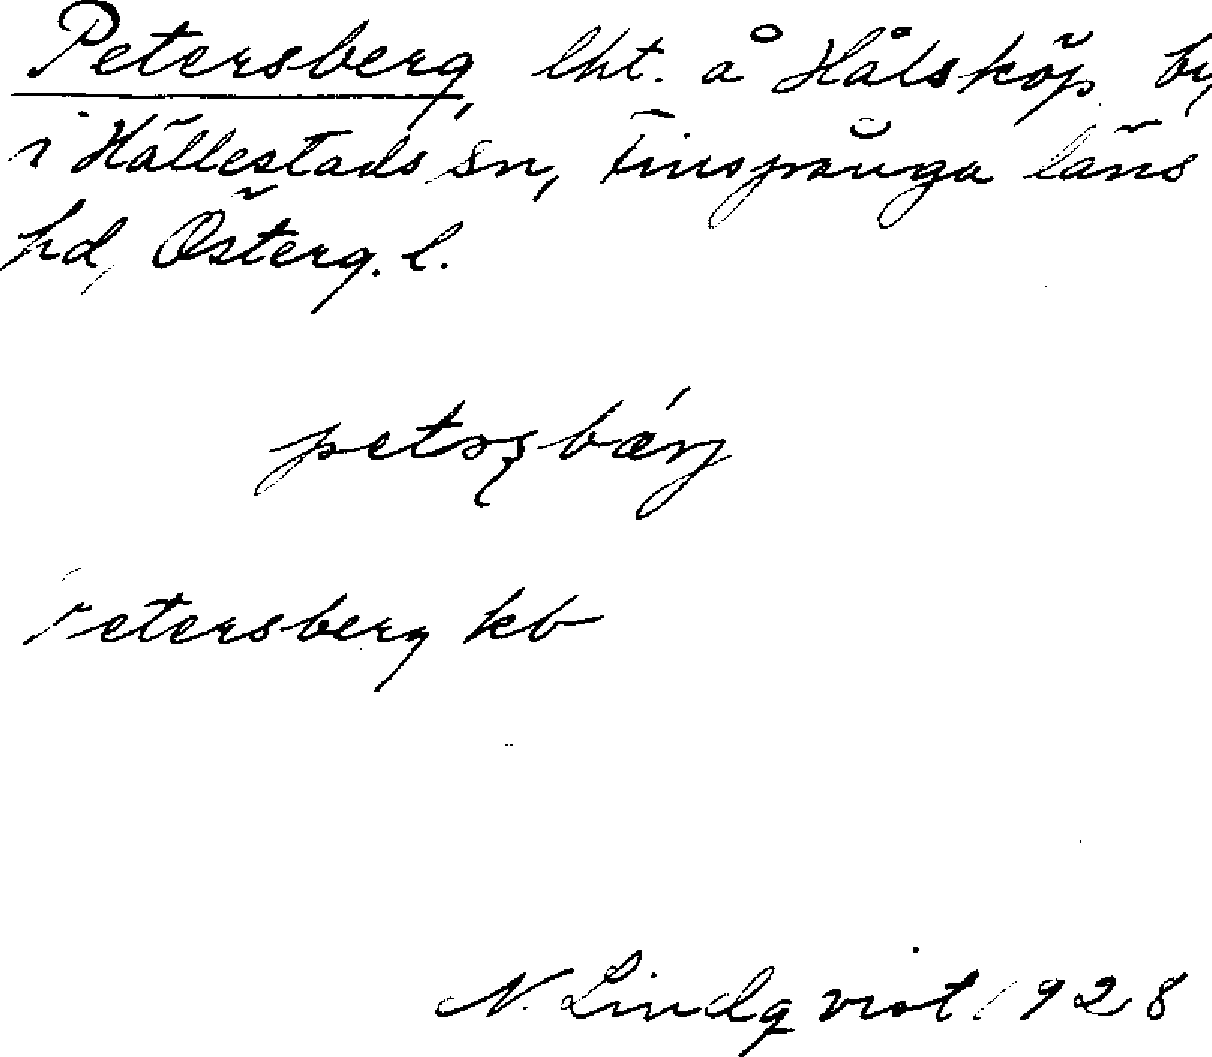 Petersberg, lht. å Hålsköp by
i Hällestads sn, Finspånga läns
hd, Österg. l.
petrsbærj
Petersberg kb
N. Lindqvist 1928